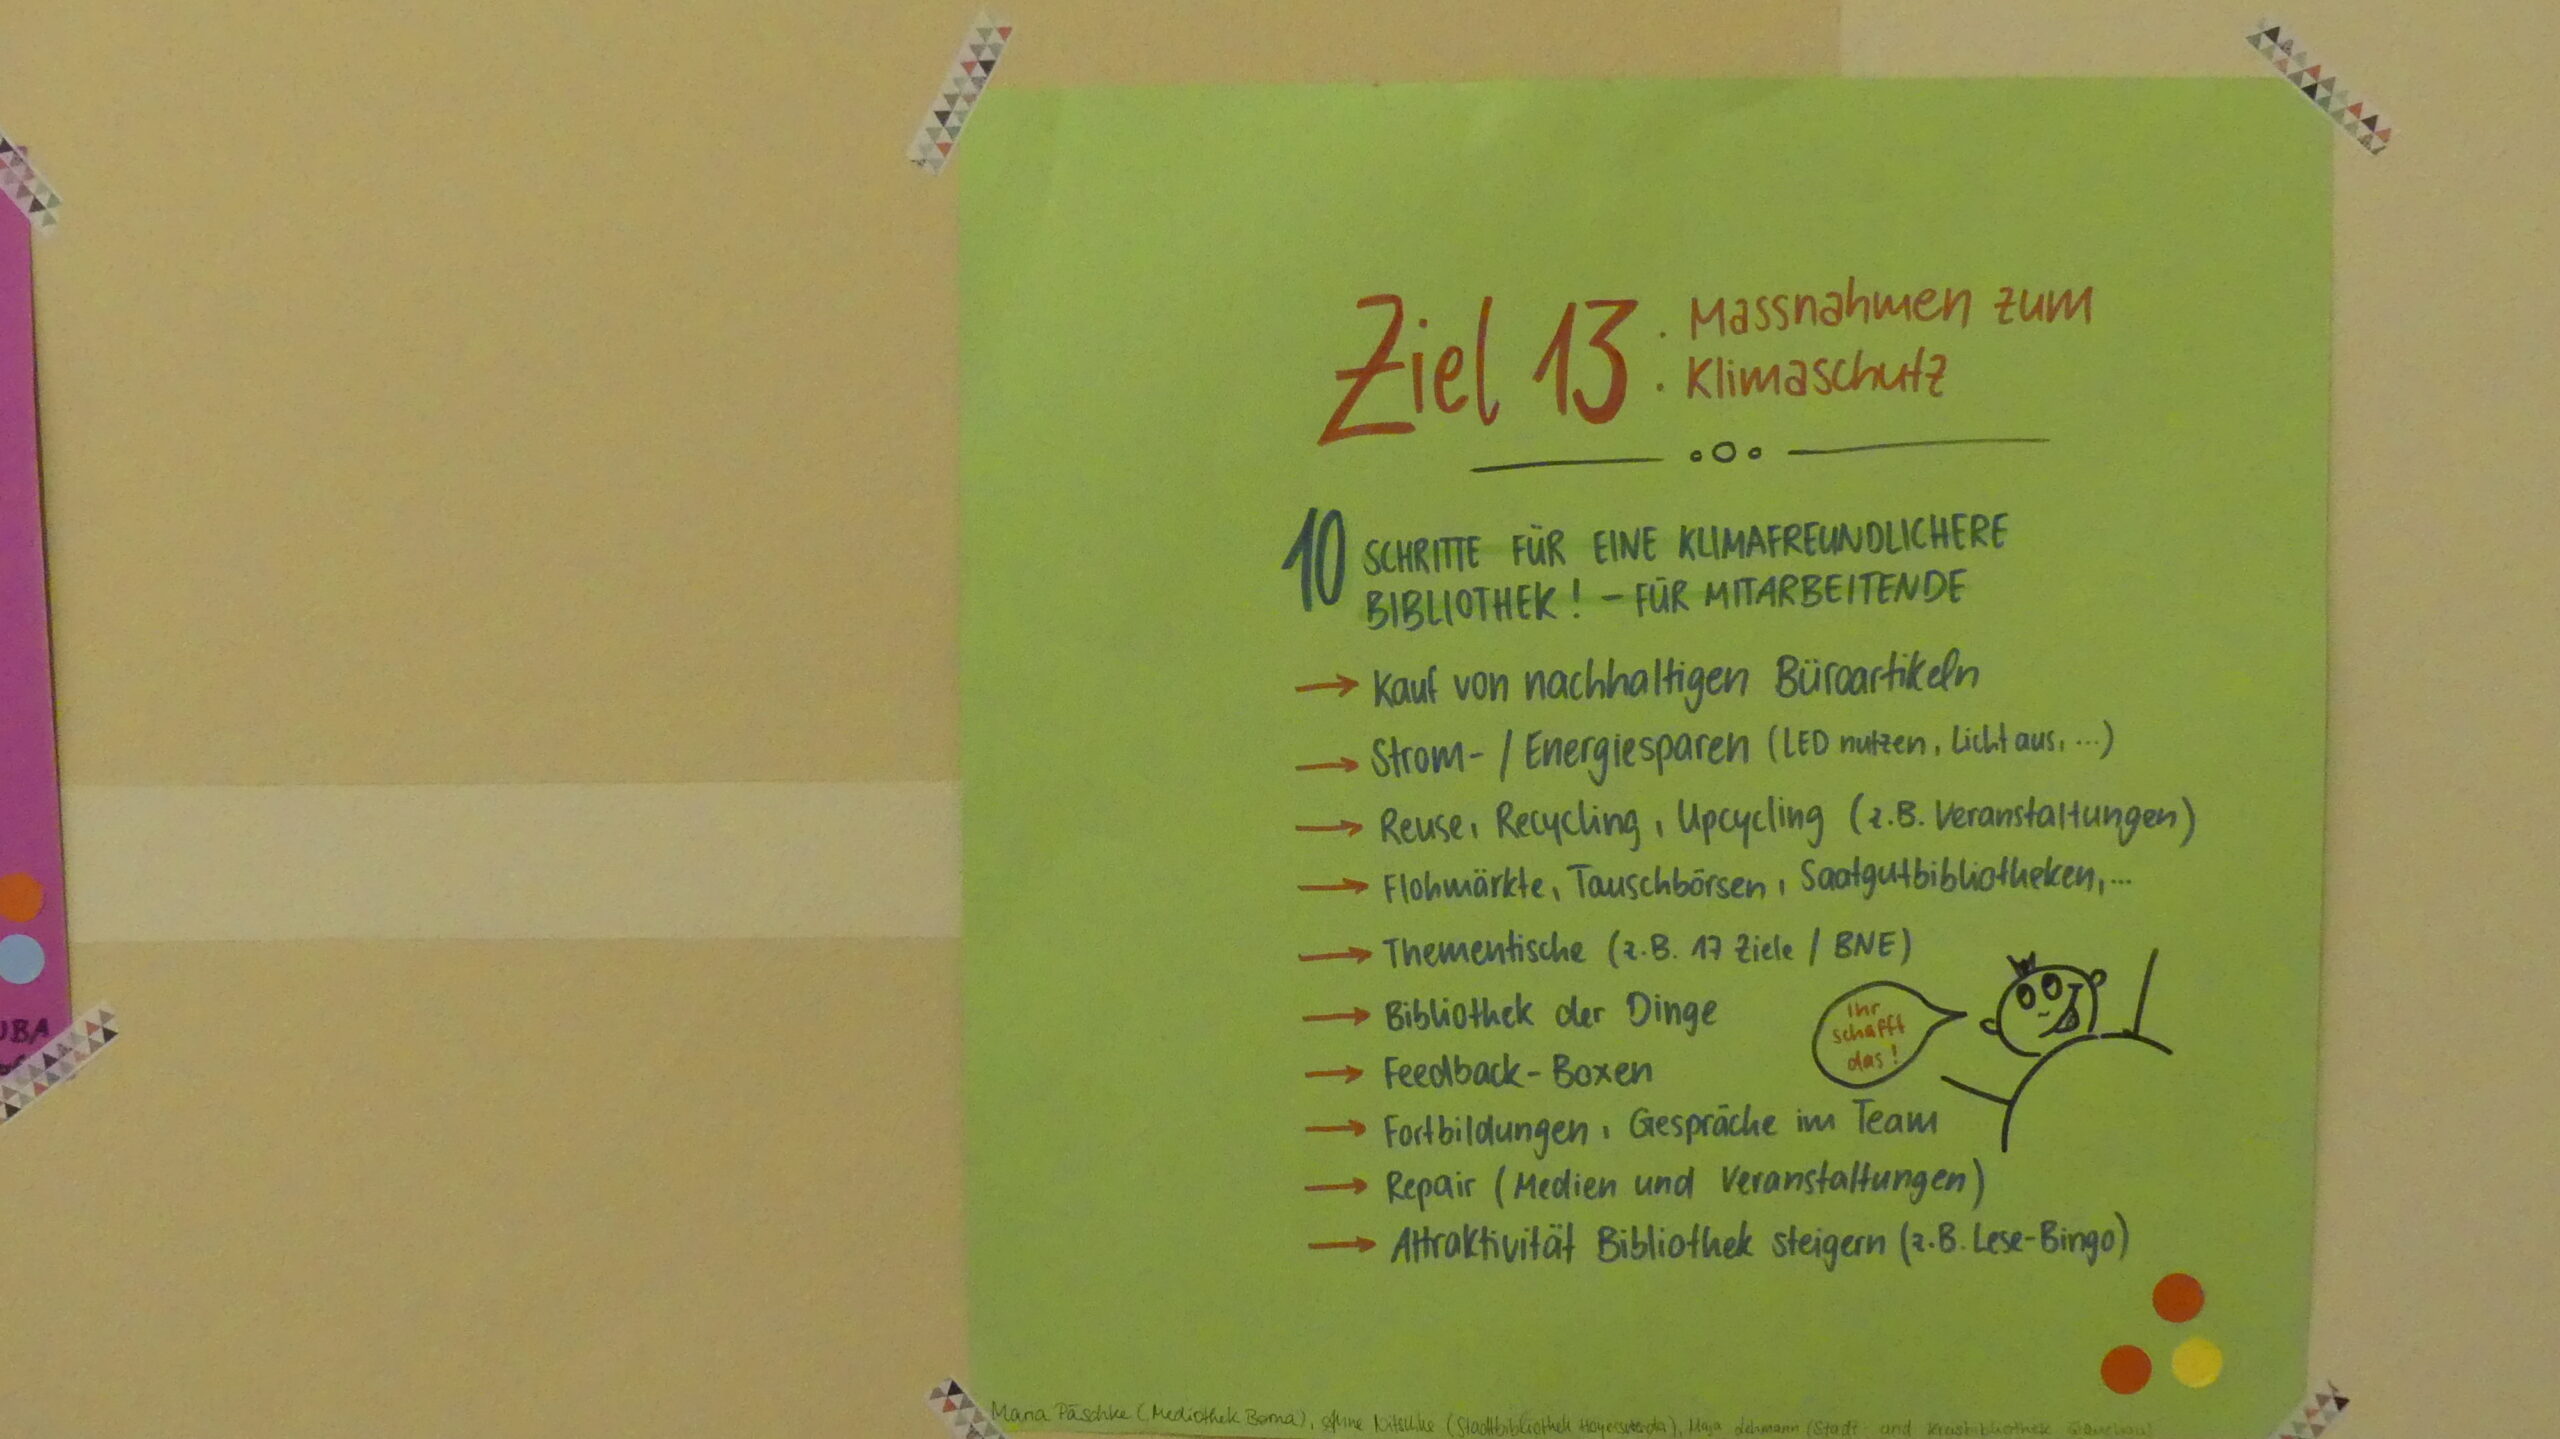 Ziel 13: Massnahmen zum
Klimaschutz
10 SCHRITTE FÜR EINE KLIMAFREUNDLICHERE
BIBLIOTHEK! – FÜR MITARBEITENDE
→ Kauf von nachhaltigen Büroartikeln
→ Strom- / Energiesparen (LED nutzen, Licht aus, ...)
→ Reuse, Recycling, Upcycling (z.B. Veranstaltungen)
→ Flohmärkte, Tauschbörsen, Saatgutbibliotheken, ...
→ Thementische (z.B. 17 Ziele / BNE)
→ Bibliothek der Dinge
→ Feedback-Boxen
→ Fortbildungen, Gespräche im Team
→ Repair (Medien und Veranstaltungen)
→ Attraktivität Bibliothek steigern (z.B. Lese-Bingo)
Ihr
schafft
das!
Maria Päschke (Mediothek Borna), Nitschke (Stadtbibliothek Hoyerswerda), Maja Lehmann (Stadt- und Kreisbibliothek
UBA